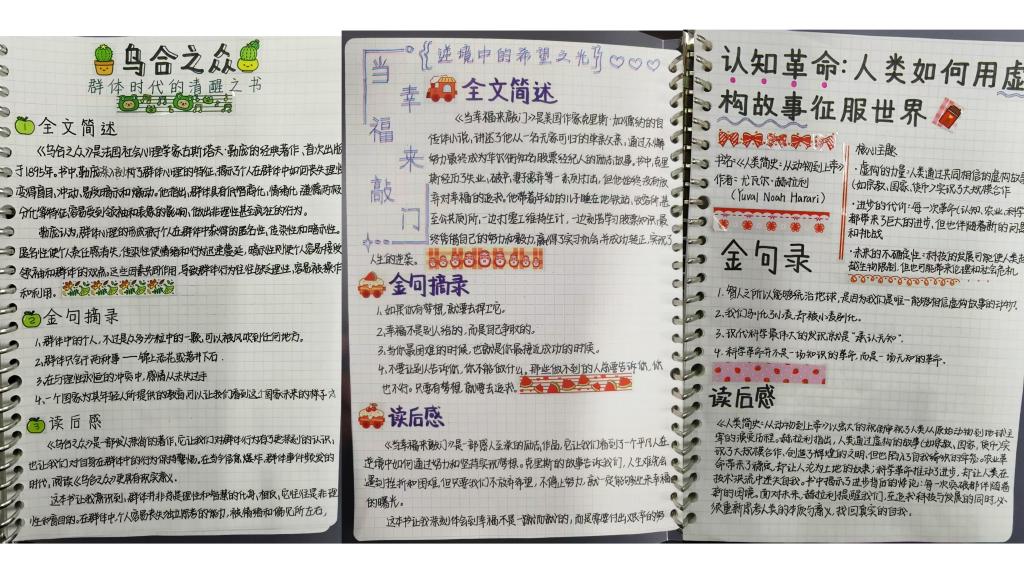 乌合之众
群体时代的清醒之书
1 全文简述
《乌合之众》是法国社会心理学家古斯塔夫·勒庞的经典著作，首次出版
于1895年。书中，勒庞深入剖析了群体心理的特征，揭示了个人在群体中如何丧失理性
变得盲目、冲动、易被暗示和煽动。他指出，群体具有低智商化、情绪化
分化等特征，容易受到领袖和表象的影响，做出非理性甚至疯狂的行为。
勒庞认为，群体心理的形成源于个人在群体中获得的匿名性、传染性和暗示性。
匿名性使个人责任感消失，传染性使情绪和行为迅速蔓延，暗示性则使个人容易接收
领袖和群体的观点。这些因素共同作用，导致群体行为往往缺乏理性，容易被操作
和利用。
2 金句摘录
1.群体中的个人，不过是众多沙粒中的一颗，可以被风吹到任何地方。
2.群体只会干两种事——锦上添花或落井下石．
3.在与理性永恒的冲突中，感情从未失过手
4.一个国家为其年轻人所提供的教育，可以让我们看到这个国家未来的样子
3 读后感
《乌合之众》是一部发人深省的著作，它让我们对群体行为有了更深刻的认识，
也让我们对自身在群体中的行为保持警惕。在当今信息爆炸、群体事件频发的
时代，阅读《乌合之众》更具有现实意义。
这本书让我意识到，群体并非总是理性和智慧的化身，相反，它往往是非理
性和盲目的。在群体中，个人容易丧失独立思考的能力，被情绪和偏见所左右，
当幸福来敲门
逆境中的希望之光
全文简述
《当幸福来敲门》是美国作家克里斯·加德纳的自
传体小说，讲述了他从一名无家可归的单亲父亲，通过不懈
努力最终成为华尔街知名股票经纪人的励志故事。书中，克里
斯经历了失业、破产、妻子离弃等一系列打击，但他始终没有放
弃对幸福的追求。他带着年幼的儿子睡在地铁站、收容所甚
至公共厕所，一边打零工维持生计，一边刻苦学习股票知识，最
终凭借自己的努力和毅力，赢得了实习机会，并成功转正，实现了
人生的逆袭。
金句摘录
1.如果你有梦想，就要去捍卫它。
2.幸福不是别人给的，而是自己争取的。
3.当你最困难的时候，也就是你最接近成功的时候。
4.不要让别人告诉你，你不能做什么。那些做不到的人总要告诉你，你
也不行。只要有梦想，就要去追求。
读后感
《当幸福来敲门》是一部感人至深的励志作品，它让我们看到了一个平凡人在
逆境中如何通过努力和坚持实现梦想。克里斯的故事告诉我们，人生难免会
遇到挫折和困难，但只要我们不放弃希望，不停止努力，就一定能够迎来幸福
的曙光。
这本书让我深刻体会到幸福不是一蹴而就的，而是需要付出艰辛的努
认知革命：人类如何用虚
构故事征服世界
书名：《人类简史：从动物到上帝》
作者：尤瓦尔·赫拉利
（Yuval Noah Harari）
核心主题
·虚构的力量：人类通过共同相信的虚构故事
（如宗教、国家、货币）实现了大规模合作
·进步的代价：每一次革命（认知、农业、科学）
都带来了巨大的进步，但也伴随着新的问题
和挑战
·未来的不确定性：科技的发展可能使人类
越生物限制，但也可能带来伦理和社会危机
金句录
1.智人之所以能够统治地球，是因为我们是唯一能够相信虚构故事的动物。
2.我们驯化了小麦，却被小麦驯化。
3.现代科学最伟大的发现就是“承认无知”．
4.科学革命并不是一场知识的革命，而是一场无知的革命．
读后感
《人类简史：从动物到上帝》以宏大的视角审视了人类从原始动物到地球主
宰的演变历程。赫拉利指出，人类通过虚构的故事（如宗教、国家、货币）实
现了大规模合作，创造了辉煌的文明，但也陷入了自我编织的牢笼。农业革
命带来了稳定，却让人沦为土地的奴隶；科学革命推动了进步，却让人类在
技术洪流中迷失自我。书中揭示了进步背后的悖论：每一次突破都伴随着
新的困境。面对未来，赫拉利提醒我们，在追求科技与发展的同时，必
须重新思考人类的本质与意义，找回真实的自我。